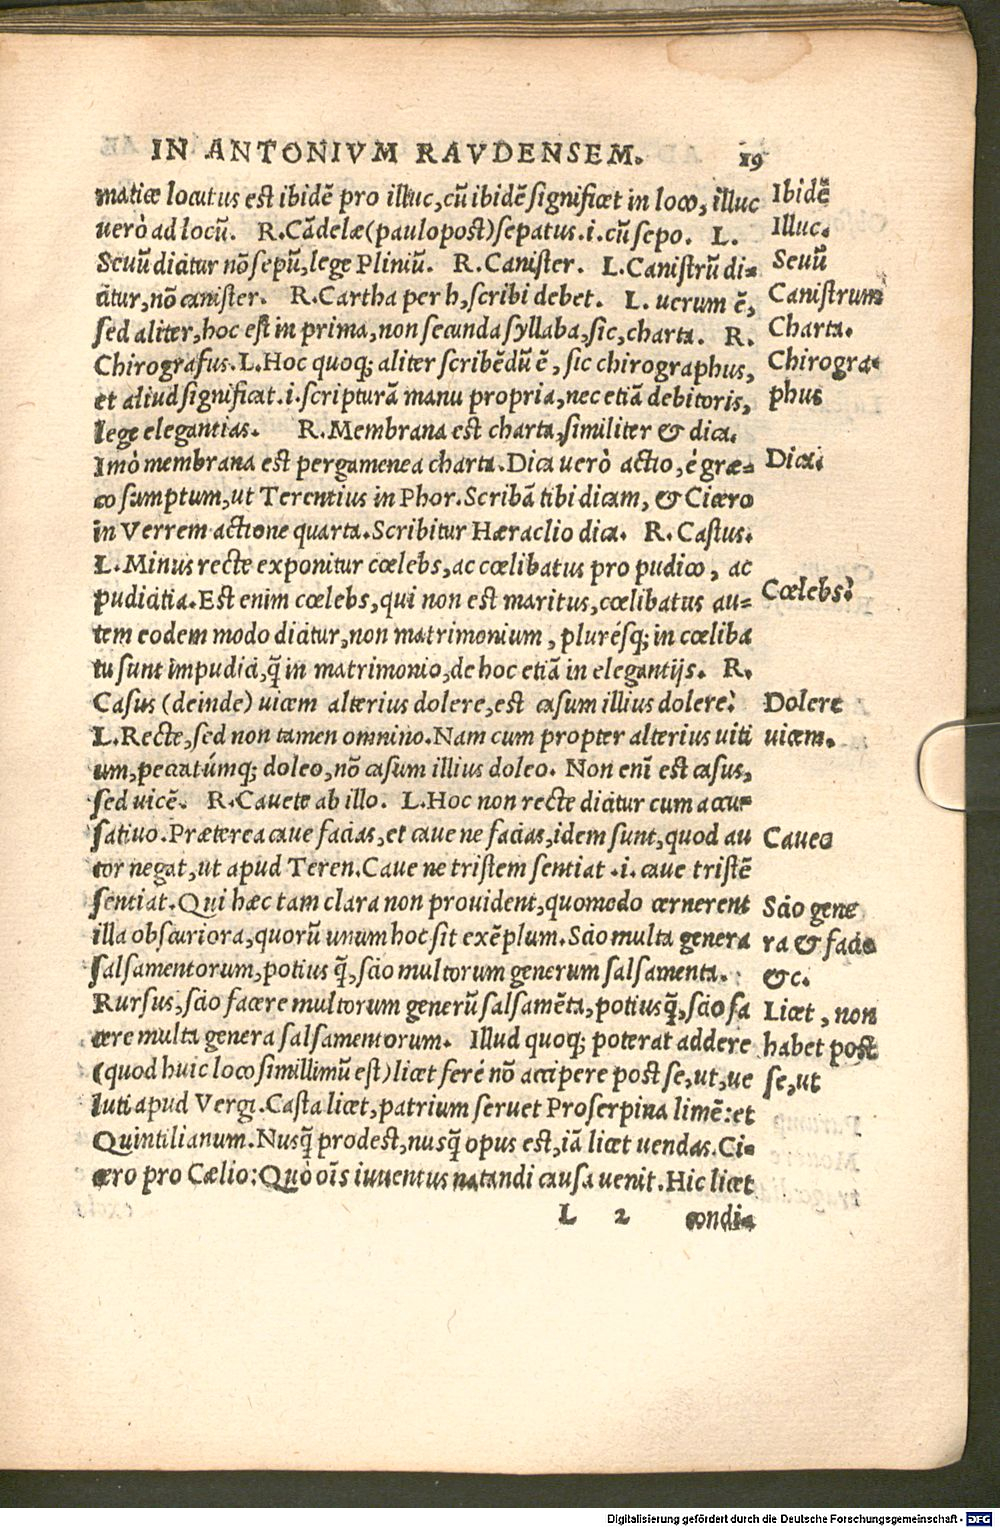 IN ANTONIVM RAVDENSEM. 19
maticæ locutus est ibidē pro illuc, cū ibidē significet in loco, illuc
uerò ad locū. R. Cādelæ (paulo post) sepatus .i. cū sepo. L.
Seuū dicitur nō sepū, lege Pliniū. R. Canister. L. Canistrū di-
citur, nō canister. R. Cartha per h, scribi debet. L. uerum ē,
sed aliter, hoc est in prima, non secunda syllaba, sic, charta. R.
Chirografus. L. Hoc quoq; aliter scribēdū ē, sic chirographus,
et aliud significat .i. scripturā manu propria, nec etiā debitoris,
lege elegantias. R. Membrana est charta, similiter & dica.
Imò membrana est pergamenea charta. Dica uerò actio, è græ-
co sumptum, ut Terentius in Phor. Scribā tibi dicam, & Cicero
in Verrem actione quarta. Scribitur Hæraclio dica. R. Castus.
L. Minus recte exponitur cœlebs, ac cœlibatus pro pudico, ac
pudicitia. Est enim cœlebs, qui non est maritus, cœlibatus au-
tem eodem modo dicitur, non matrimonium, plurésq; in cœliba
tu sunt impudici, q̄ in matrimonio, de hoc etiā in elegantijs. R.
Casus (deinde) uicem alterius dolere, est casum illius dolere?
L. Recte, sed non tamen omnino. Nam cum propter alterius uiti
um, peccatúmq; doleo, nō casum illius doleo. Non enī est casus,
sed uicē. R. Cauete ab illo. L. Hoc non recte dicitur cum accu-
satiuo. Præterea caue facias, et caue ne facias, idem sunt, quod au
tor negat, ut apud Teren. Caue ne tristem sentiat .i. caue tristē
sentiat. Qui hæc tam clara non prouident, quomodo cernerent
illa obscuriora, quorū unum hoc sit exēplum. Scio multa genera
salsamentorum, potius q̄, scio multorum generum salsamenta.
Rursus, scio facere multorum generū salsamēta, potius q̄, scio fa
cere multa genera salsamentorum. Illud quoq; poterat addere
(quod huic loco simillimū est) licet feré nō accipere post se, ut, ue
luti apud Vergi. Casta licet, patrium seruet Proserpina limē: et
Quintilianum. Nusq̄ prodest, nusq̄ opus est, iā licet uendas. Ci-
cero pro Cælio: Quò oīs iuuentus natandi causa uenit. Hic licet
L 2 condi-
Ibidē
Illuc.
Seuū
Canistrum
Charta.
Chirogra-
phus
Dica.
Cœlebs?
Dolere
uicem.
Caueo
Scio gene
ra & facio
&c.
Licet, non
habet post
se, ut
Digitalisierung gefördert durch die Deutsche Forschungsgemeinschaft - DFG